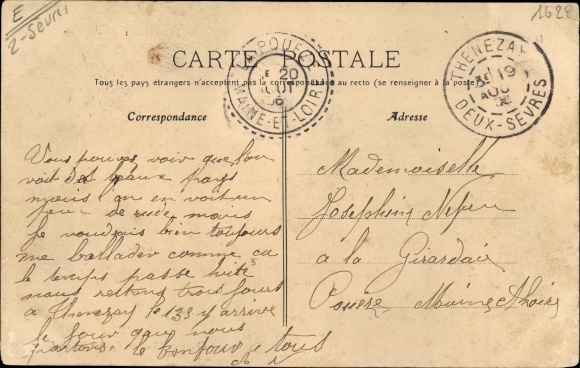 E
2-Sevres
1628
CARTE POSTALE
Tous les pays étrangers n'acceptent pas la correspondance au recto (se renseigner à la poste)
POUEZE
20
AOUT
06
MAINE-ET-LOIRE
THENEZAY
19
AOU
DEUX-SEVRES
Correspondance
Adresse
Vous pouvez voir que l'on
voit des beaux pays
mais l'on en voit un
peu de mais
je voudrais bien toujours
me ballader comme ca
le temps passe vite
nous restons trois jours
a Thenezay le y arrive
le jour que nous
partons le bonjour a tous
Mademoiselle
Josephin Nepveu
a la Girardai
Poueze Maine Loire